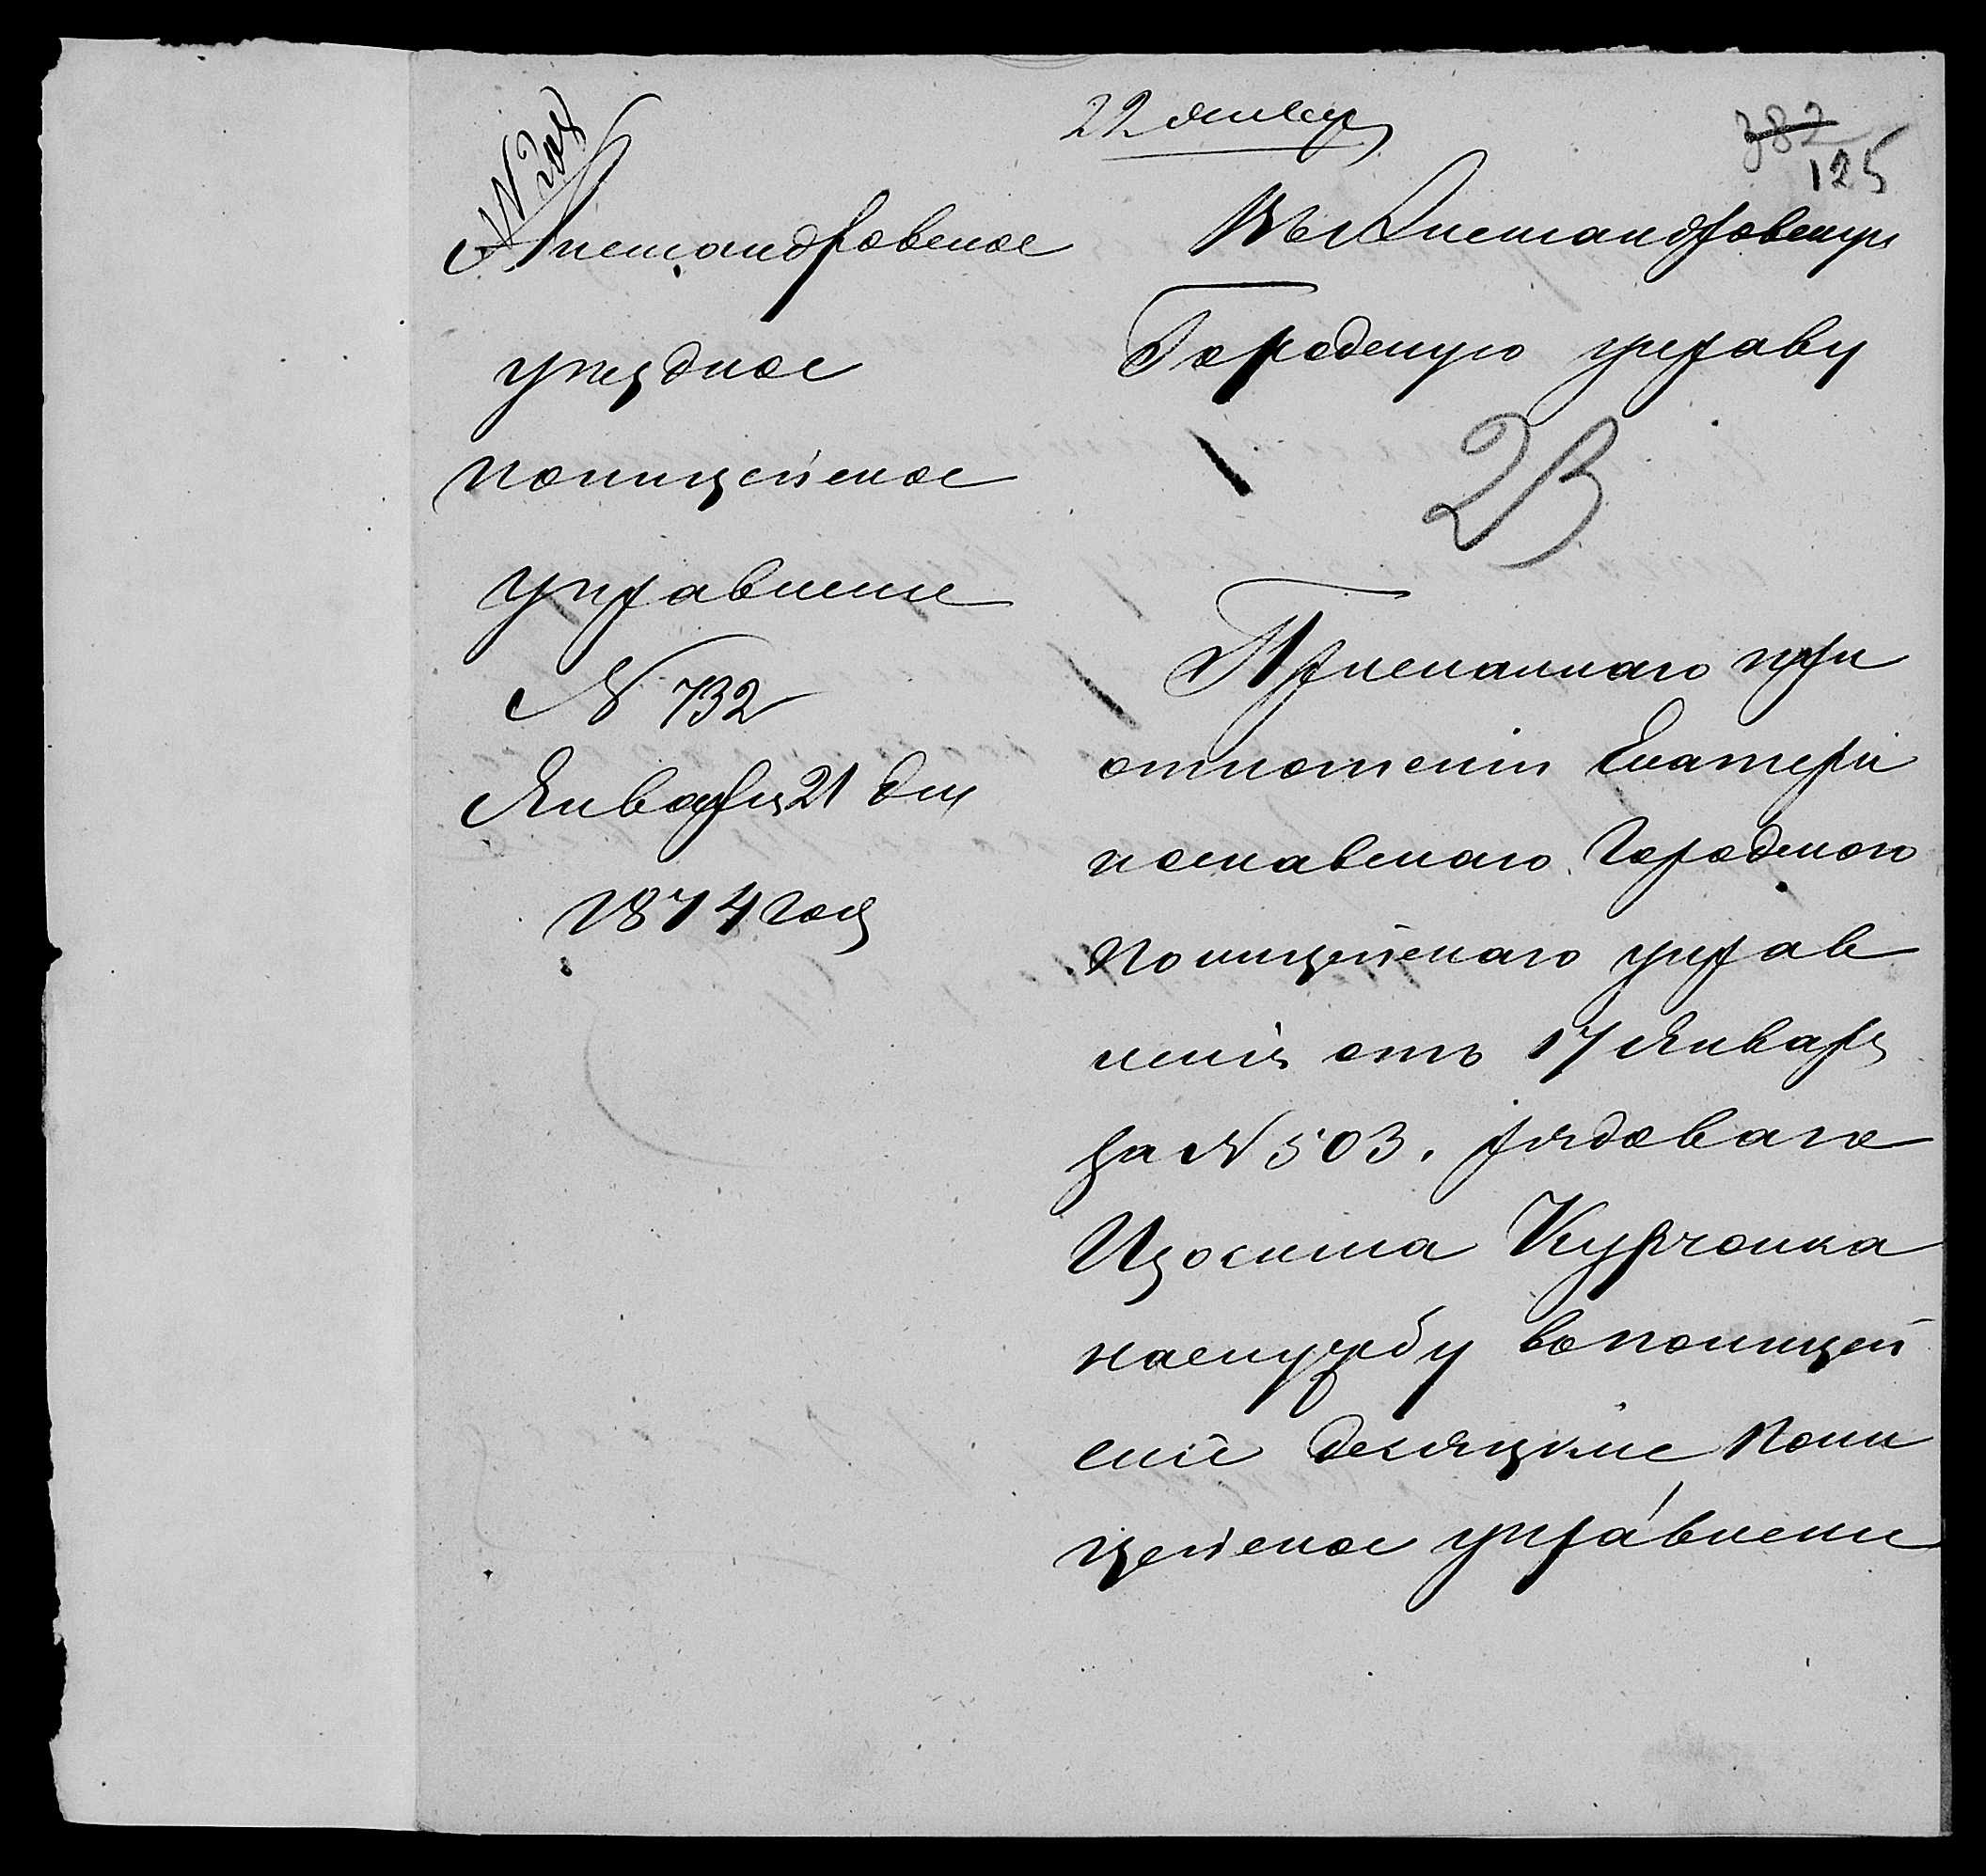 22 январ
382
125
N 208
Александровское
уѣздное
полицейское
управление
N 732
Января 21 дня
1874 года
Въ Александровскую
Городскую управу
23
Присланнаго при
отношеніи Екатери
нославскаго Городского
Полицейскаго управ
ленія отъ 17 Января
за N 503. рядоваго
Изосима Курчонка
на службу в полицей
скіе десяцкие Поли
цейское управлени